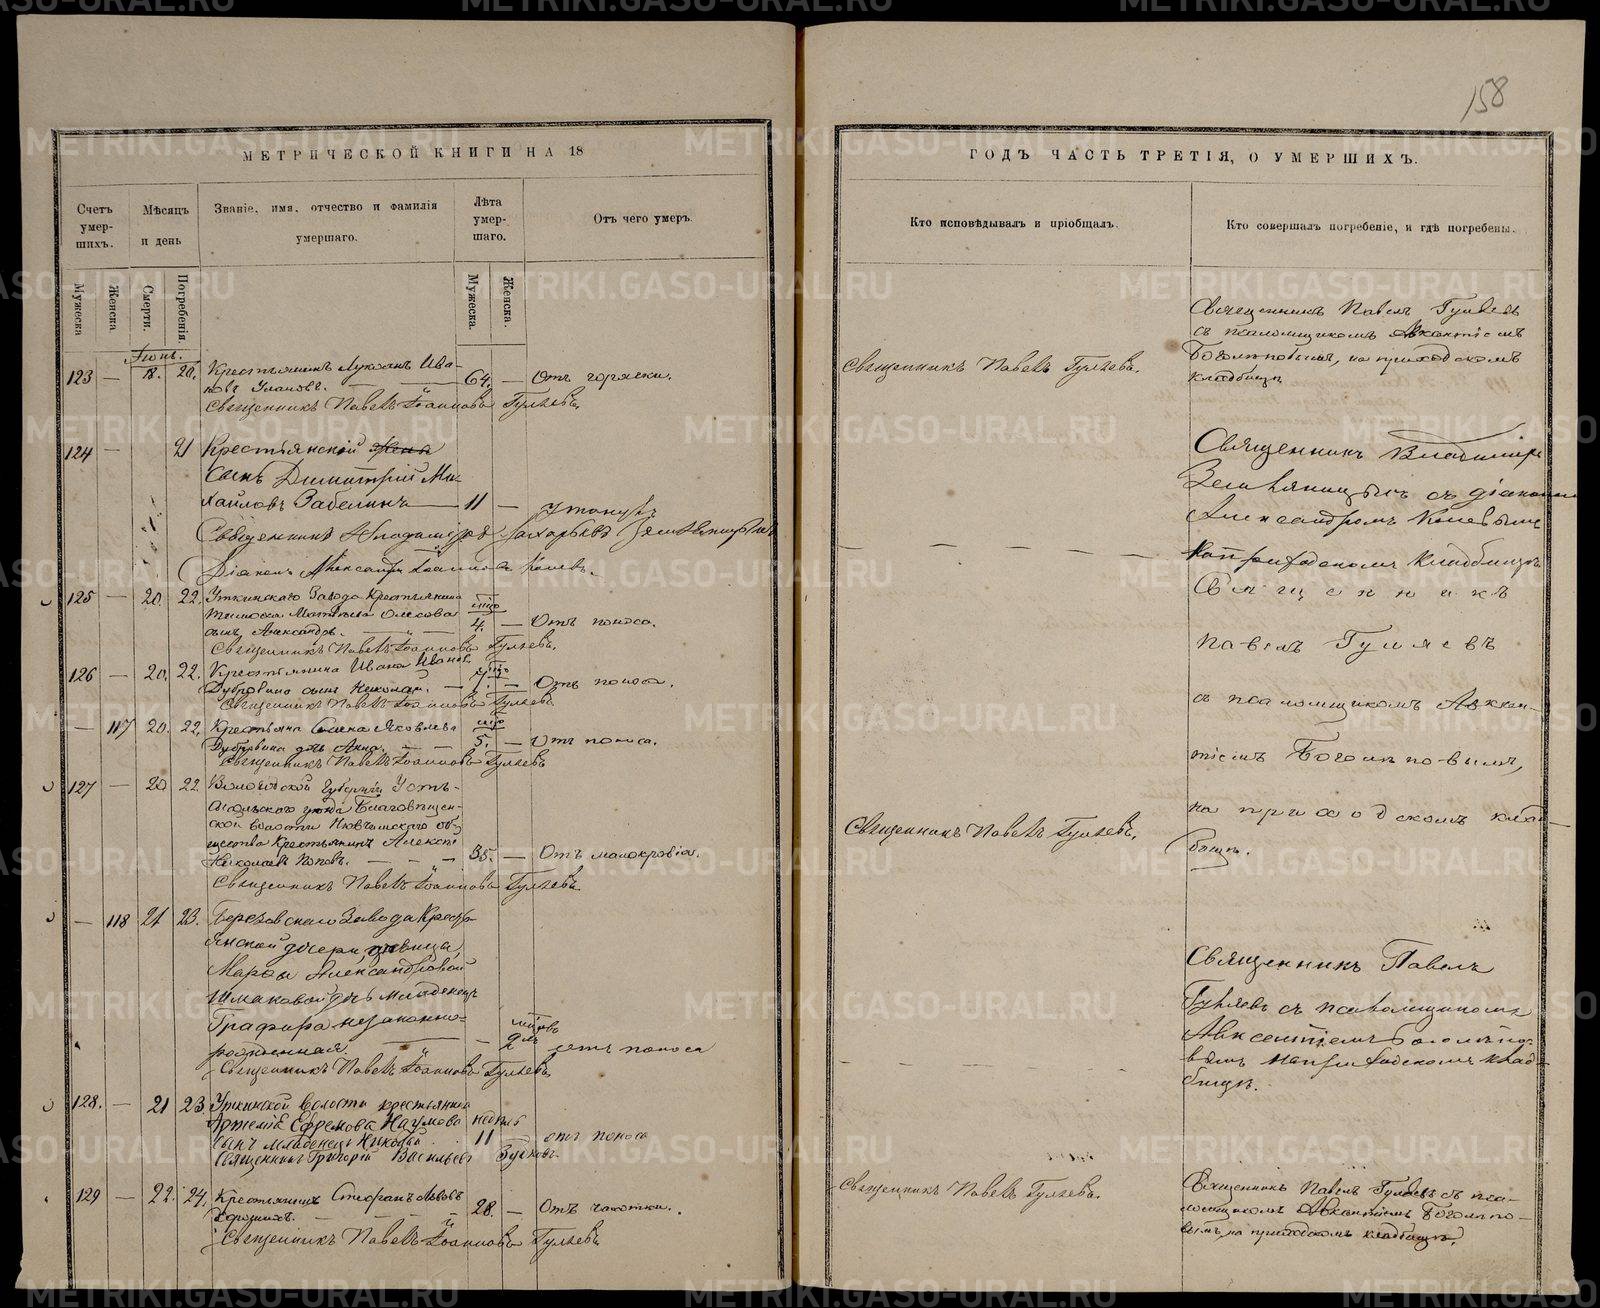 158
МЕТРИЧЕСКОЙ КНИГИ НА 18
Счетъ умер-шихъ.
Мѣсяцъ и день
Званіе, имя, отчество и фамилія умершаго.
Лѣта умер-шаго.
Отъ чего умеръ.
Мужеска
Женска
Смерти.
Погребенія.
Мужеска.
Женска.
Іюнь.
123 — 18. 20. Крестьянинъ Ива-
новъ — 64. — Отъ горячки.
Священникъ Павелъ Іоанновъ Гуляевъ.
124 — 21 Крестьянскій жена
сынъ Димитрій Ми-
хайловъ Забелинъ — 11 — утонулъ
Священникъ Владиміръ Захарьевъ
Діаконъ Александръ Іоанновъ
125 — 20. 22. Уткинскаго Завода Крестьянина
сынъ Александръ. — 4. — Отъ поноса.
Священникъ Павелъ Іоанновъ Гуляевъ.
126 — 20. 22. Крестьянина Ивана Иванов.
Дубровина сынъ Николай. — Отъ поноса.
Священникъ Павелъ Іоанновъ Гуляевъ
— 117 20. 22. Крестьяни Яковлева
дочь Анна. — 5. — Отъ поноса.
Священникъ Павелъ Іоанновъ Гуляевъ
127 — 20 22. Вологодской Губерніи Усть-
сысольскаго уѣзда Благовѣщен-
ской волости об-
щества Крестьянинъ Алексѣй
Николаевъ Поповъ. — 35. — Отъ малокровія.
Священникъ Павелъ Іоанновъ Гуляевъ
— 118 21 23. Березовскаго Завода Кресть-
янской дочери, дѣвицы
Марѳы Александровой
Шмаковой дочь младенецъ
Графира незаконно-
рожденная. — 2 отъ поноса
Священникъ Павелъ Іоанновъ Гуляевъ
128. — 21 23 Уткинской волости крестьянина
Артемія Ефремова Наумова недѣль
сынъ младенецъ Николай 11 отъ поноса
Священникъ Григорій Васильевъ
129 — 22. 24. Крестьянинъ Стефанъ Львовъ
28. — Отъ чахотки.
Священникъ Павелъ Іоанновъ Гуляевъ
ГОДЪ ЧАСТЬ ТРЕТІЯ, О УМЕРШИХЪ.
Кто исповѣдывалъ и пріобщалъ.
Кто совершалъ погребеніе, и гдѣ погребены.
Священникъ Павелъ Гуляевъ.
Священникъ Павелъ Гуляевъ
съ псаломщикомъ Авксентіемъ
Боголѣповымъ, на приходскомъ
кладбищѣ
Священникъ Владиміръ
съ діакономъ
Александромъ
на приходскомъ кладбищѣ
Священникъ
Павелъ Гуляевъ
съ псаломщикомъ Авксен-
тіемъ Боголѣповымъ,
на приходскомъ клад-
бищѣ.
Священникъ Павелъ Гуляевъ.
Священникъ Павелъ
Гуляевъ съ псаломщикомъ
Авксентіемъ Боголѣпо-
вымъ на приходскомъ клад-
бищѣ.
Священникъ Павелъ Гуляевъ.
Священникъ Павелъ Гуляевъ съ пса-
ломщикомъ Авксентіемъ Боголѣпо-
вымъ, на приходскомъ кладбищѣ.
METRIKI.GASO-URAL.RU